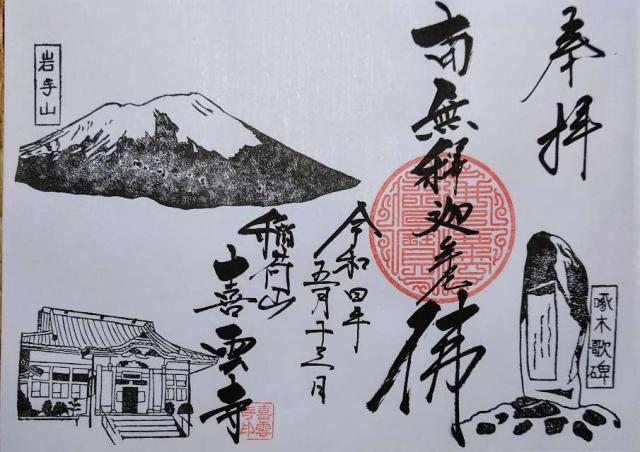 奉拝
南無釈迦牟尼佛
令和四年
五月十三日
稲荷山
喜雲寺
喜雲
寺印
岩手山
啄木歌碑